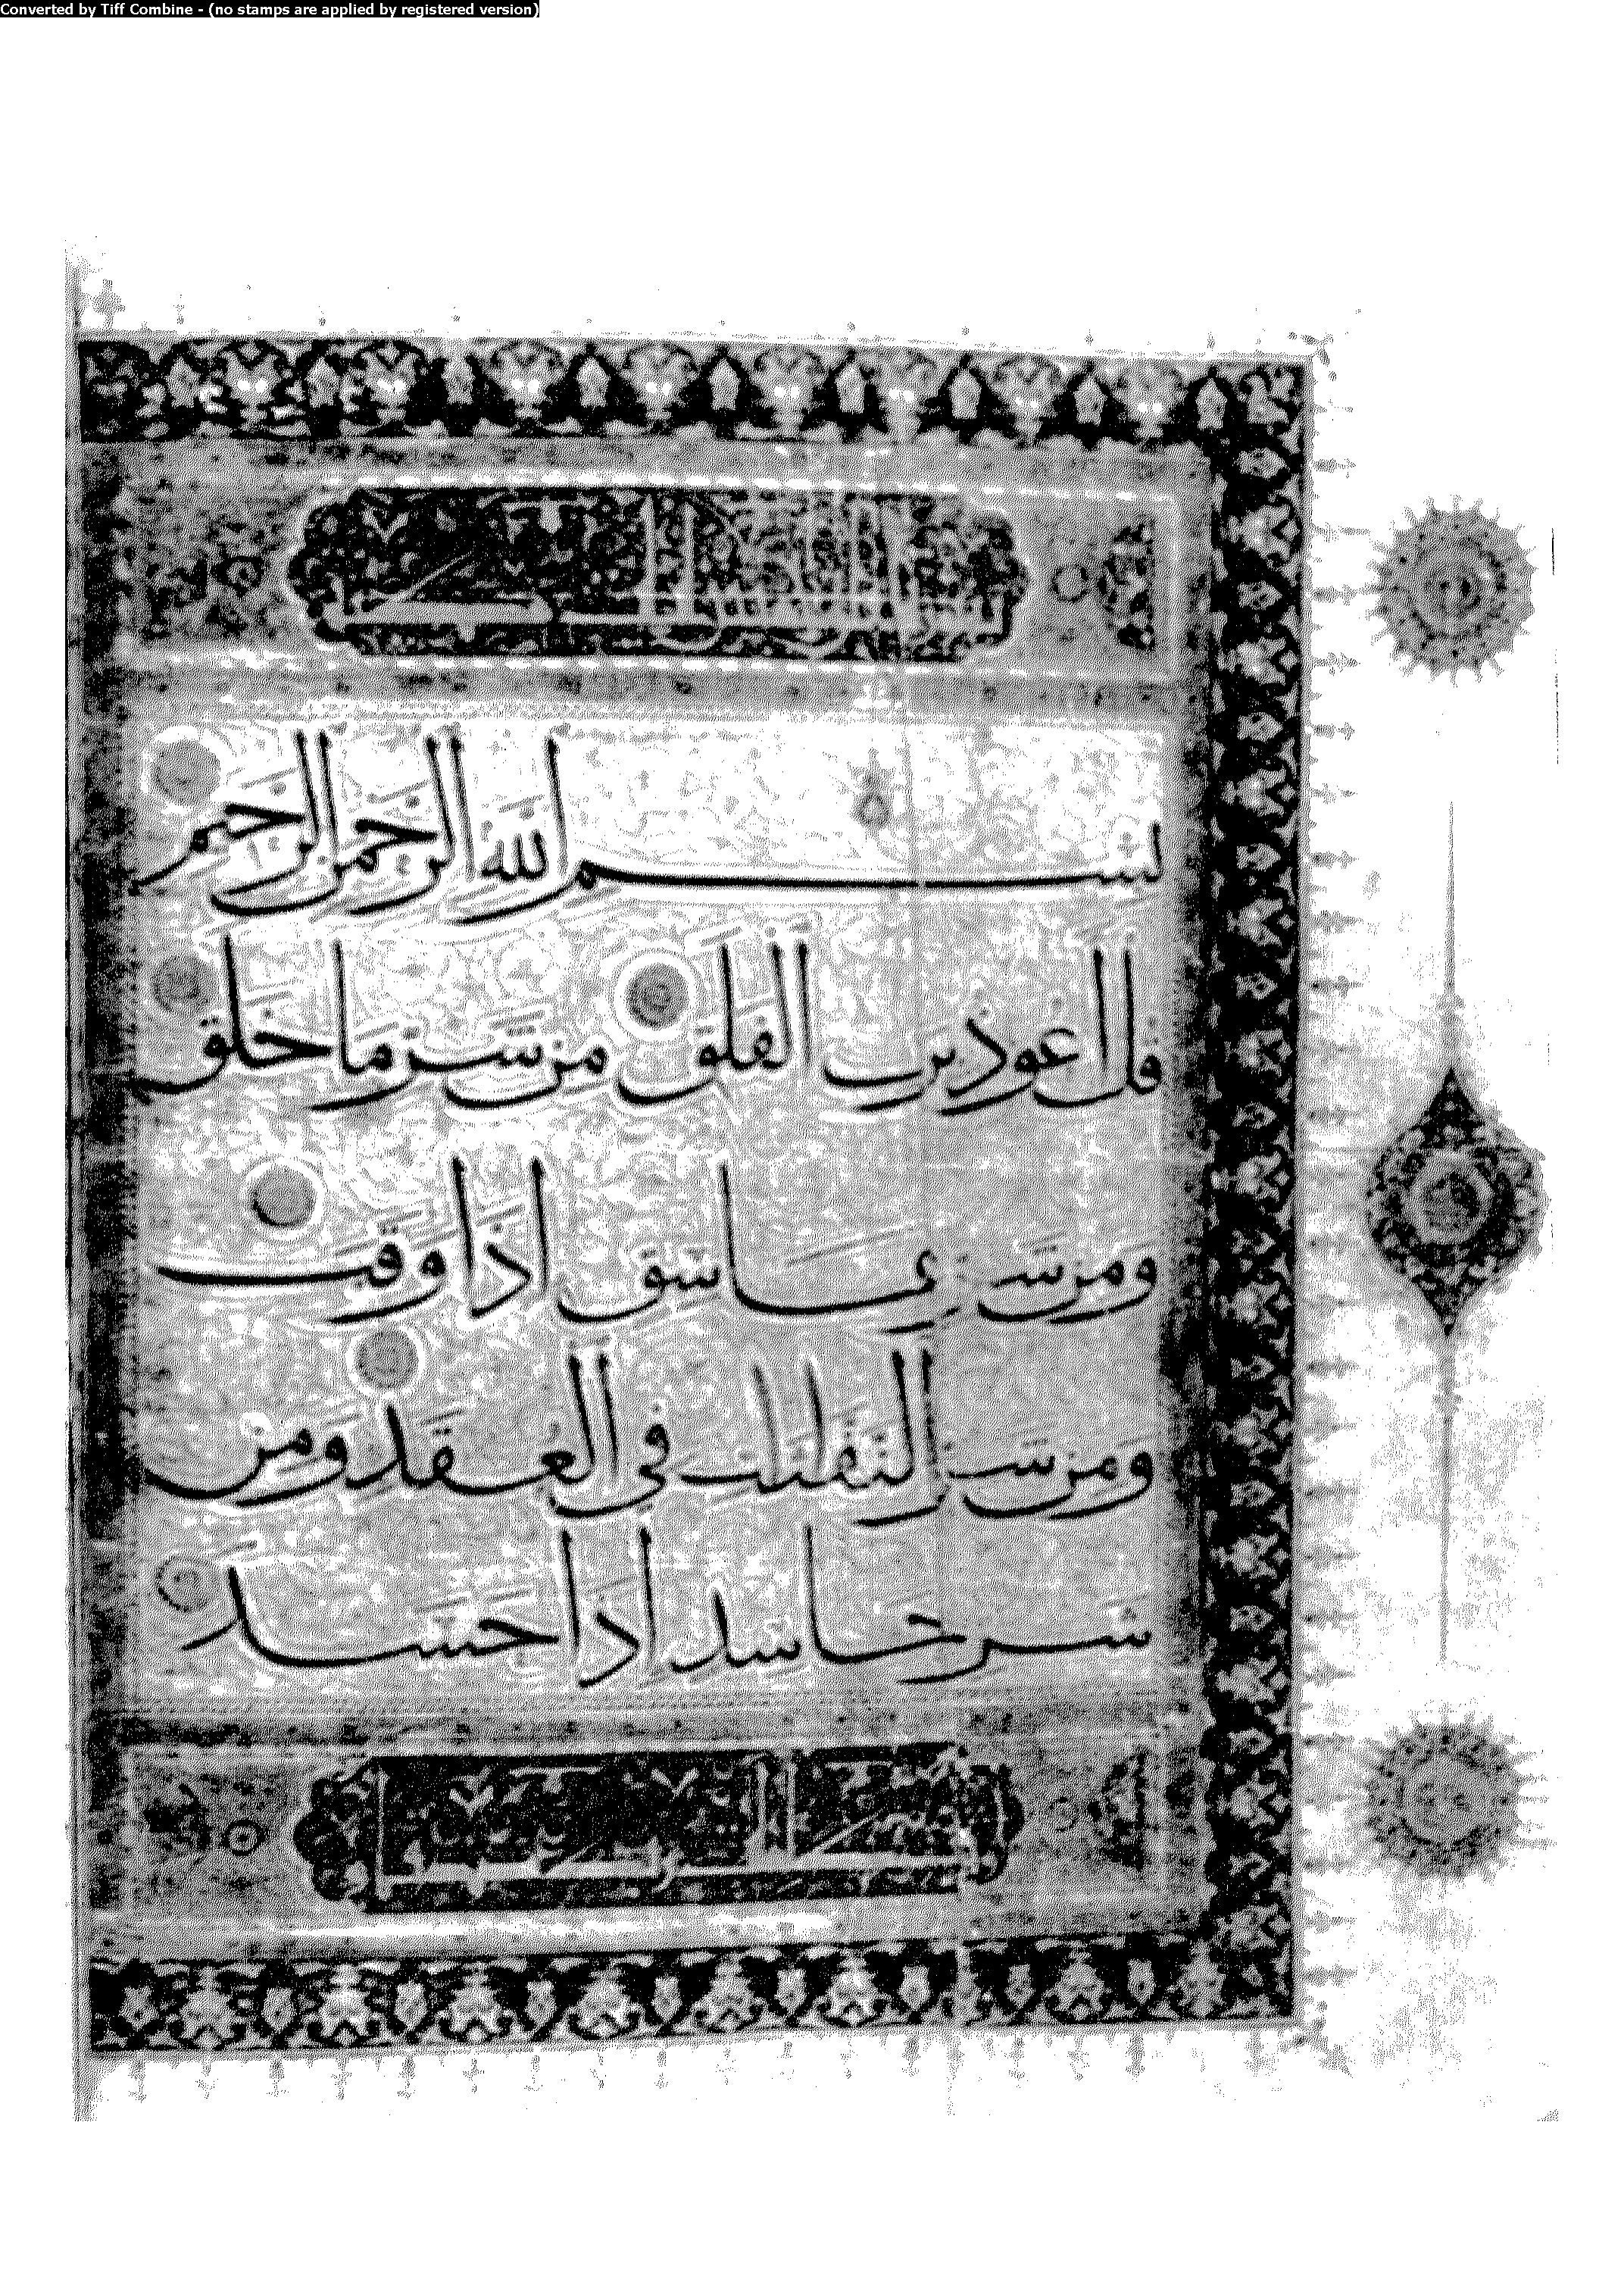 Converted by Tiff Combine - (no stamps are applied by registered version)
بسم الله الرحمن الرحيم
قل اعوذ برب الفلق من شر ما خلق
ومن شر غاسق اذا وقب
ومن شر النفثت في العقد ومن
شر حاسد اذا حسد